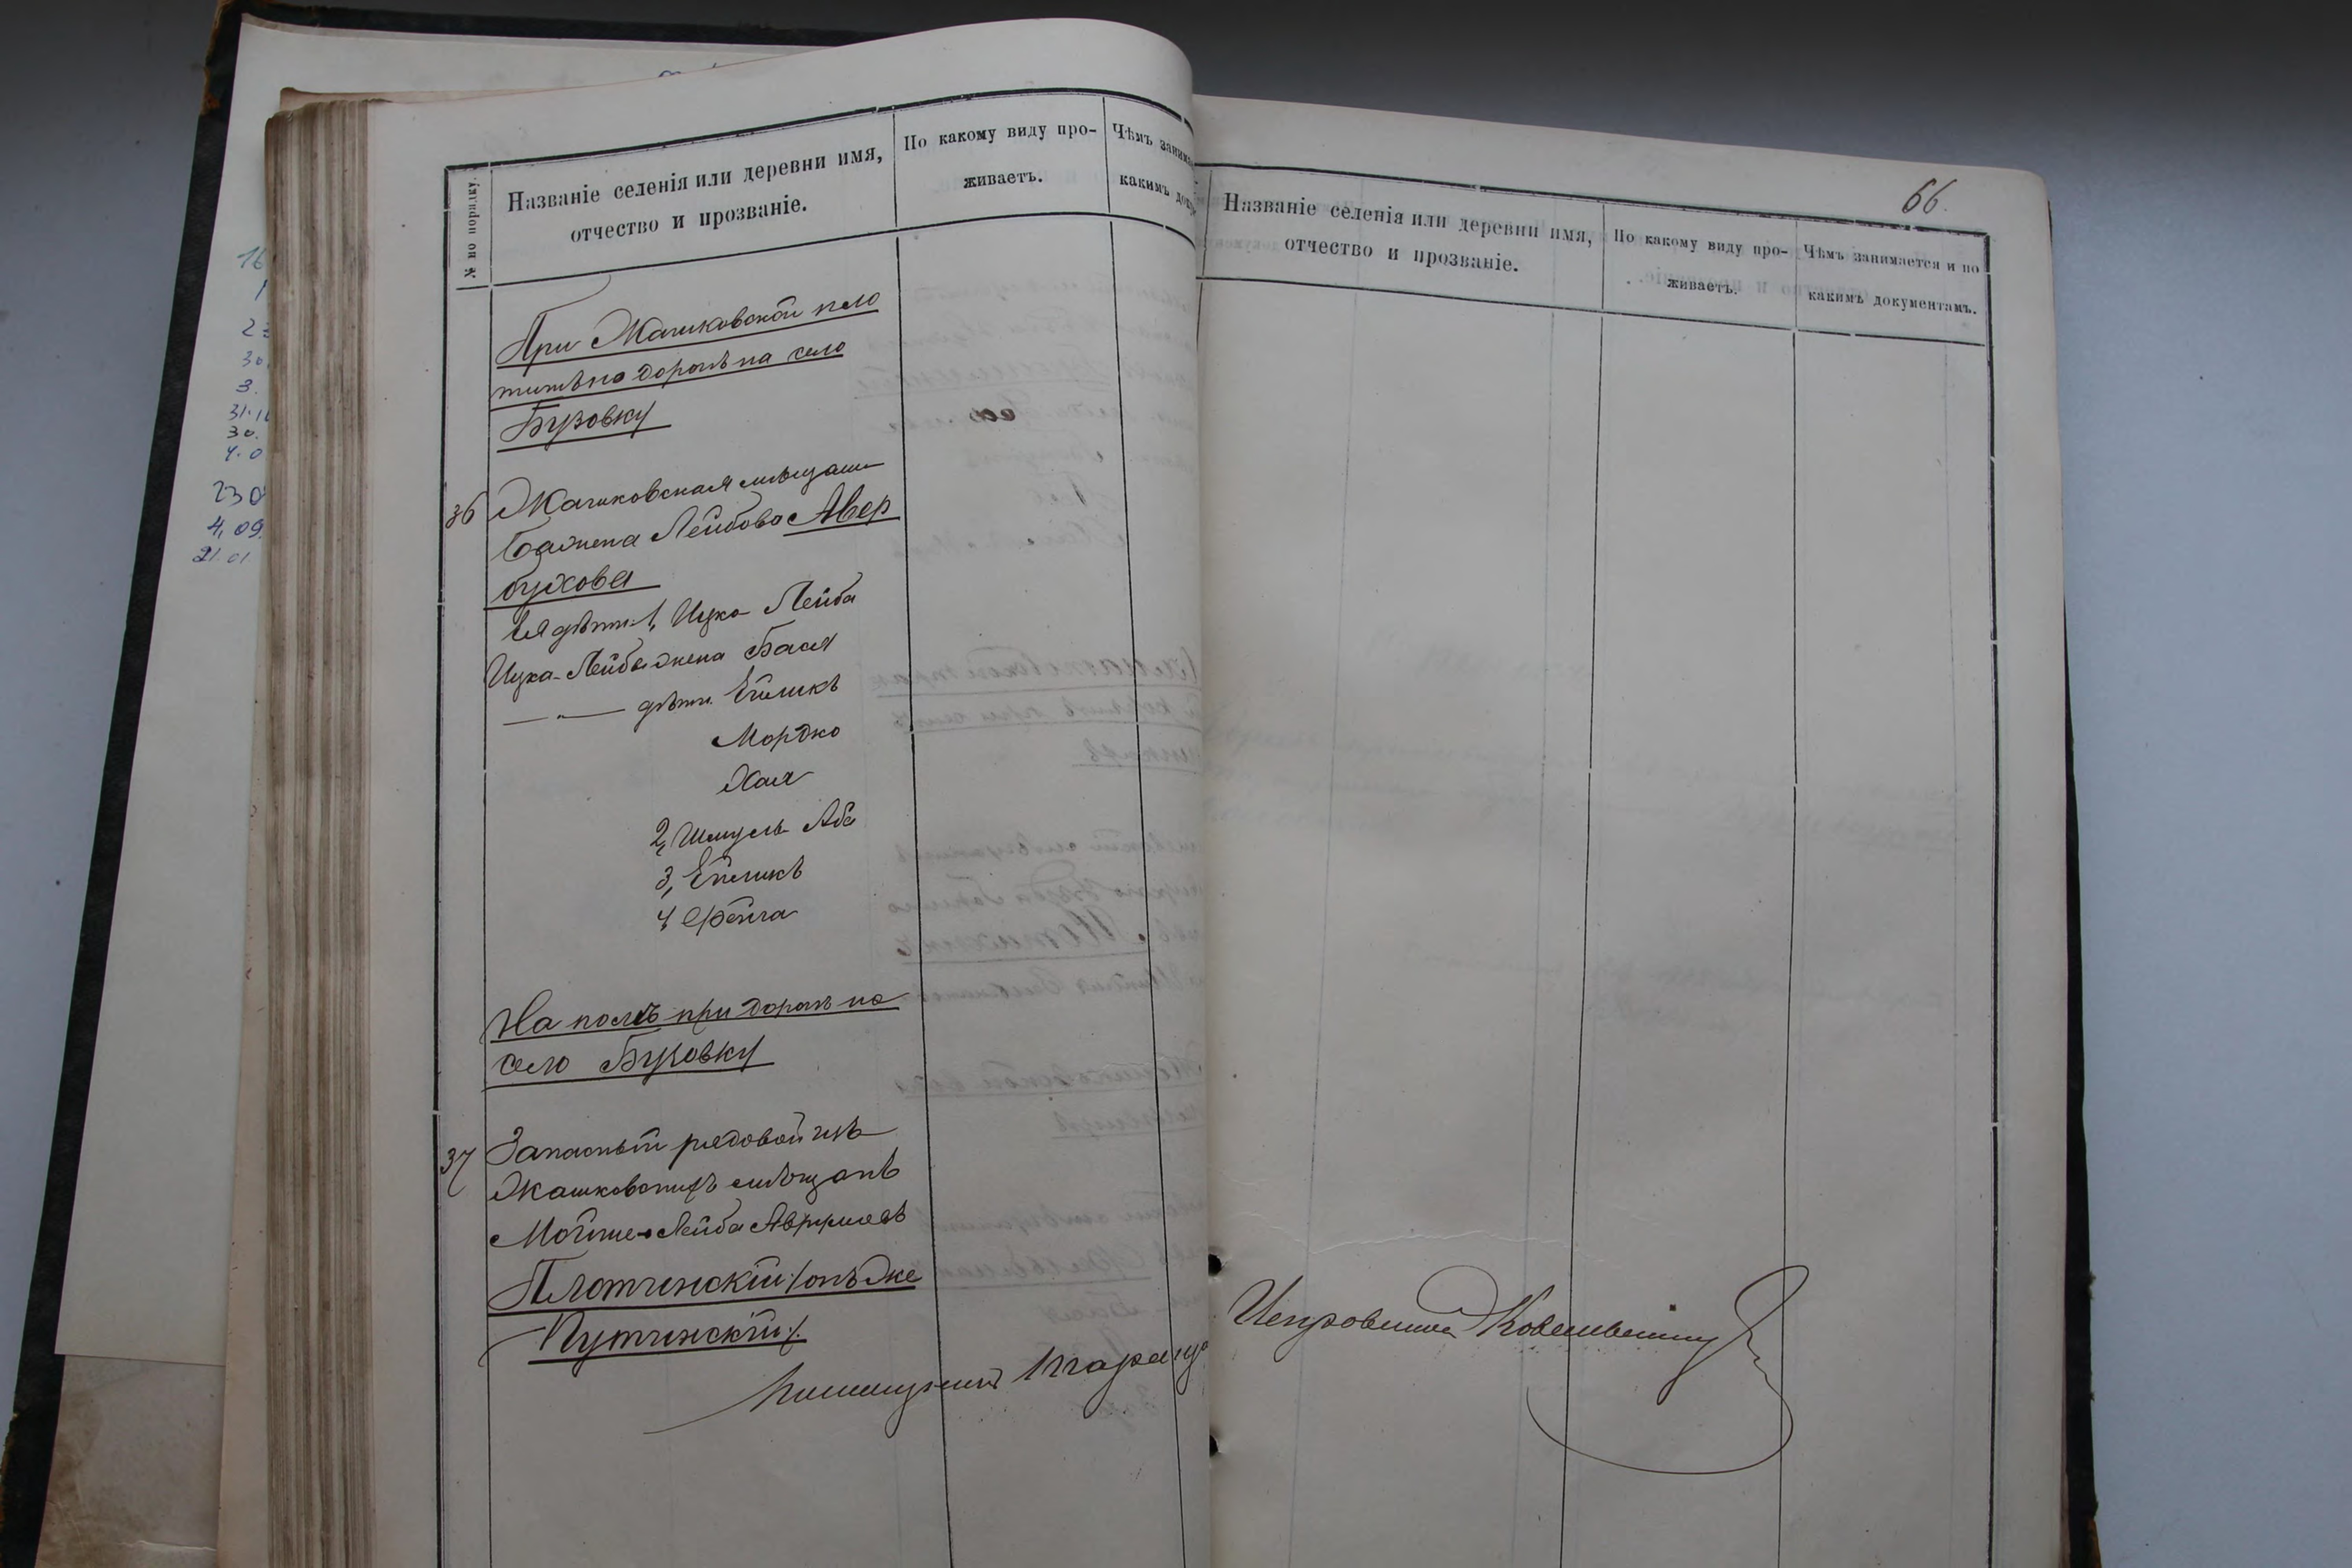 № по порядку.
Названіе селенія или деревни имя,
отчество и прозваніе.
По какому виду про-
живаетъ.
Чѣмъ заним
какимъ доку
При Жашковской пло
тинѣ по дорогѣ на село
Бузовку
36 Жашковская мѣщан
Лейбова Авер
бухова
Ея дѣти 1, Ицко Лейба
Ицка-Лейба жена Бася
— " — дѣти Епликъ
Мордко
Хая
2, Шмуль Аба
3, Епликъ
4 Фейга
На полѣ при дорогѣ на
село Бузовку
37 Запасный рядовой изъ
Жашковскихъ мѣщанъ
Мойше-Лейба Аврумовъ
Плотинскій /: онъ же
Путинскій :/.
66.
Названіе селенія или деревни имя,
отчество и прозваніе.
По какому виду про-
живаетъ.
Чѣмъ занимается и по
какимъ документамъ.
16
23
30.
3.
31.1
30.
4.0
230
4,09.
21.01